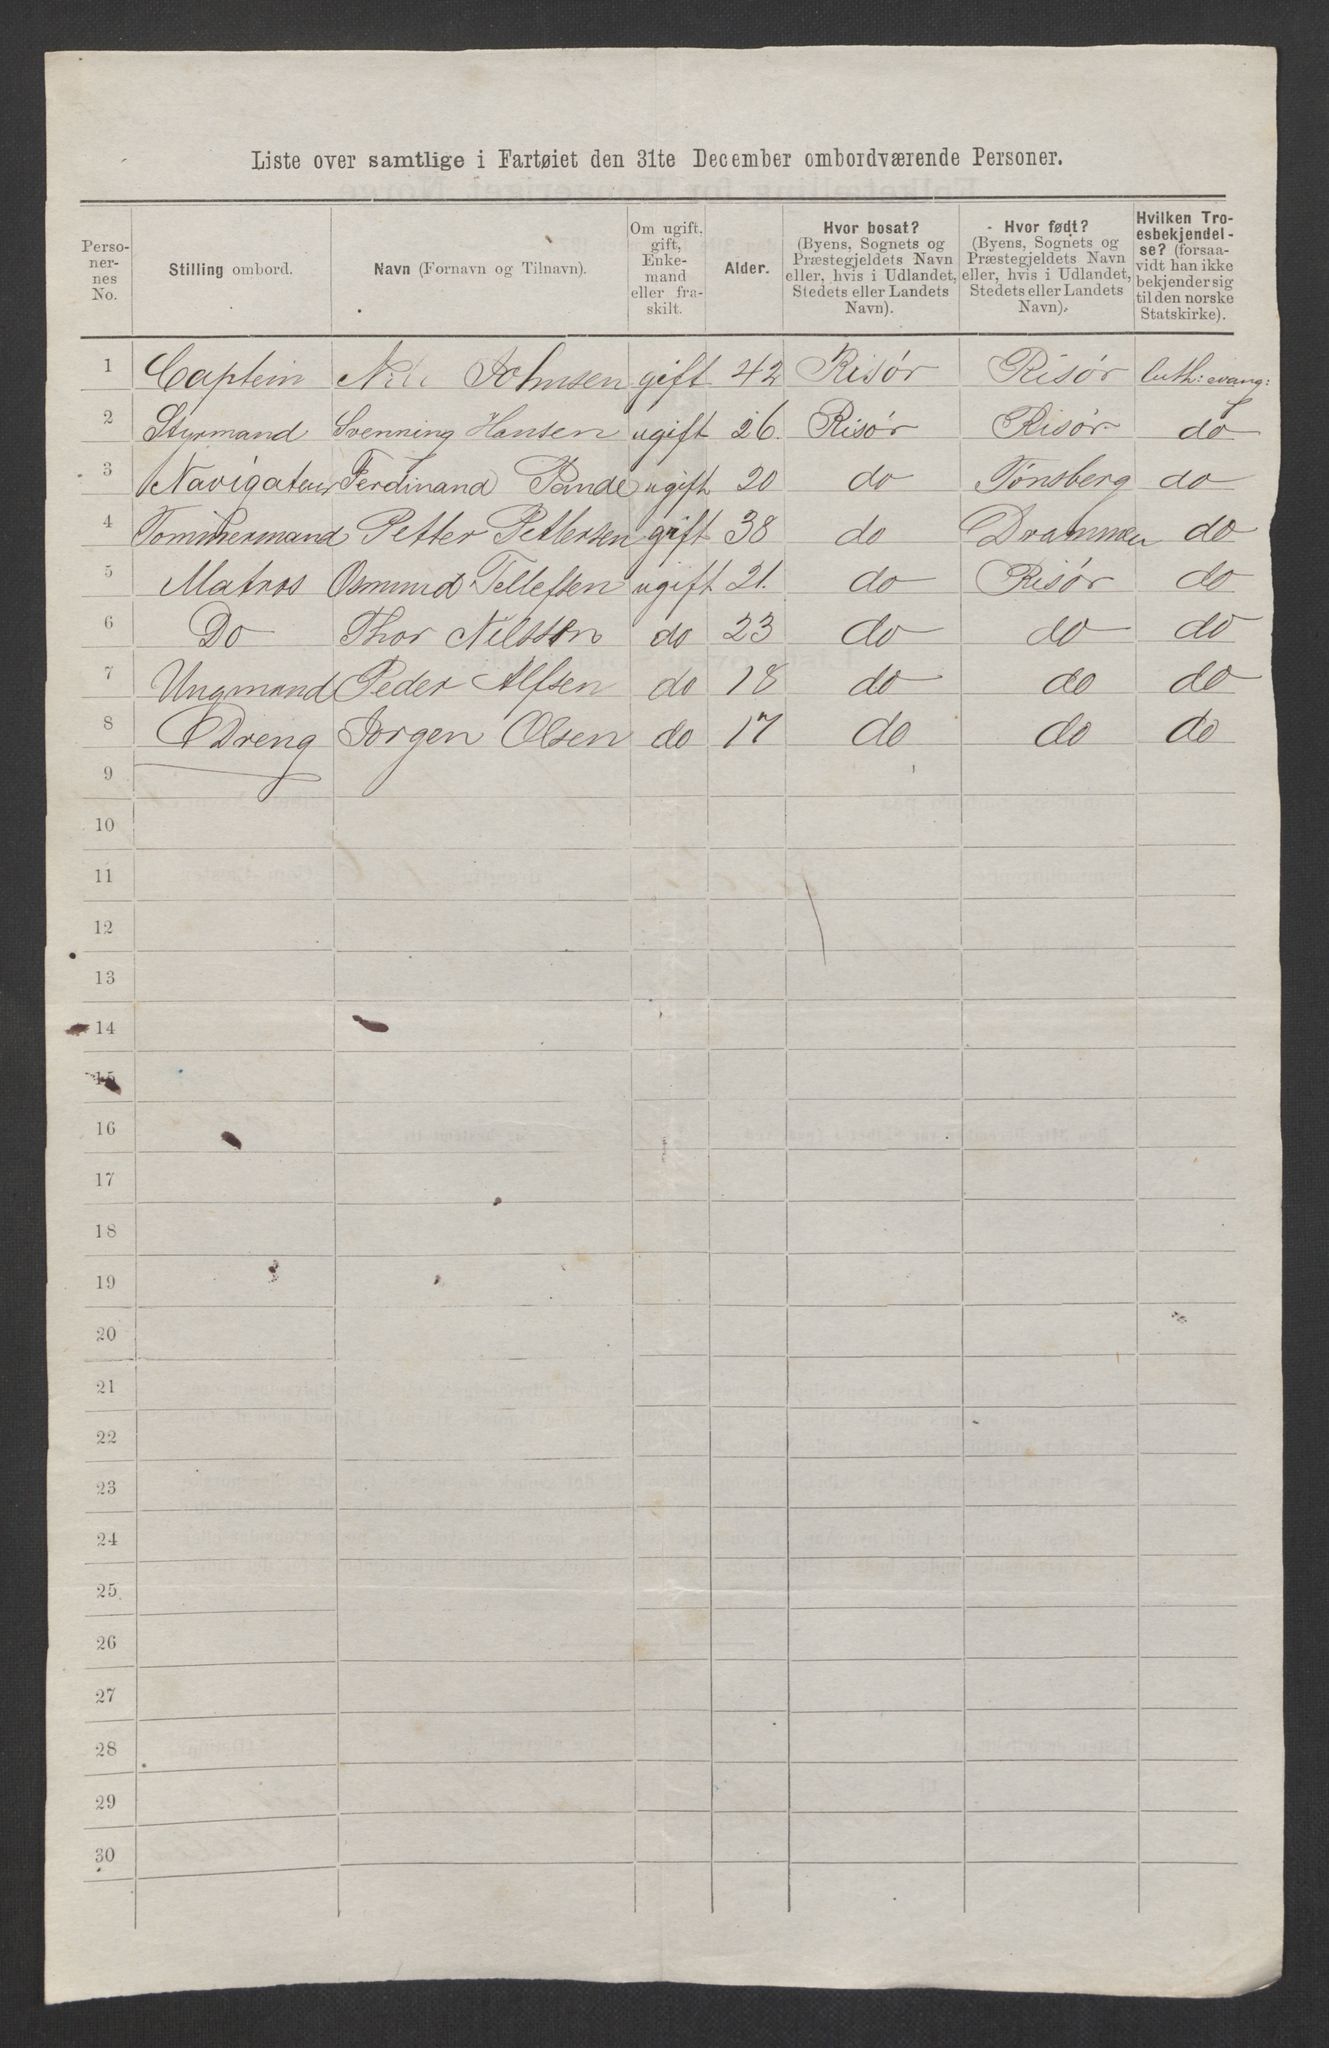 Liste over samtlige i Fartøiet den 31te December ombordværende Personer.
Perso-
ner-
nes
No.
Stilling ombord.
Navn (Fornavn og Tilnavn).
Om ugift,
gift,
Enke-
mand
eller fra-
skilt.
Alder.
Hvor bosat?
(Byens, Sognets og
Præstegjeldets Navn
eller, hvis i Udlandet,
Stedets eller Landets
Navn).
Hvor født?
(Byens, Sognets og
Præstegjeldets Navn
eller, hvis i Udlandet,
Stedets eller Landets
Navn).
Hvilken Tro-
esbekjendel-
se? (forsaa-
vidt han ikke
bekjender sig
til den norske
Statskirke).
1 Captein Nils Johnsen gift 42 Risør Risør luth: evang:
2 Styrmand Svenning Hansen ugift 26. Risør Risør do
3 Navigateur Ferdinand ugift 20 do Tønsberg do
4 Tommermand Petter Pettersen gift 38 do Drammen do
5 Matros Osmund Tellefsen ugift 21. do Risør do
6 Do Thor Nilssen do 23 do do do
7 Ungmand Peder Alfsen do 18 do do do
8 Dreng Jørgen Olsen do 17 do do do
9
10
11
12
13
14
15
16
17
18
19
20
21
22
23
24
25
26
27
28
29
30